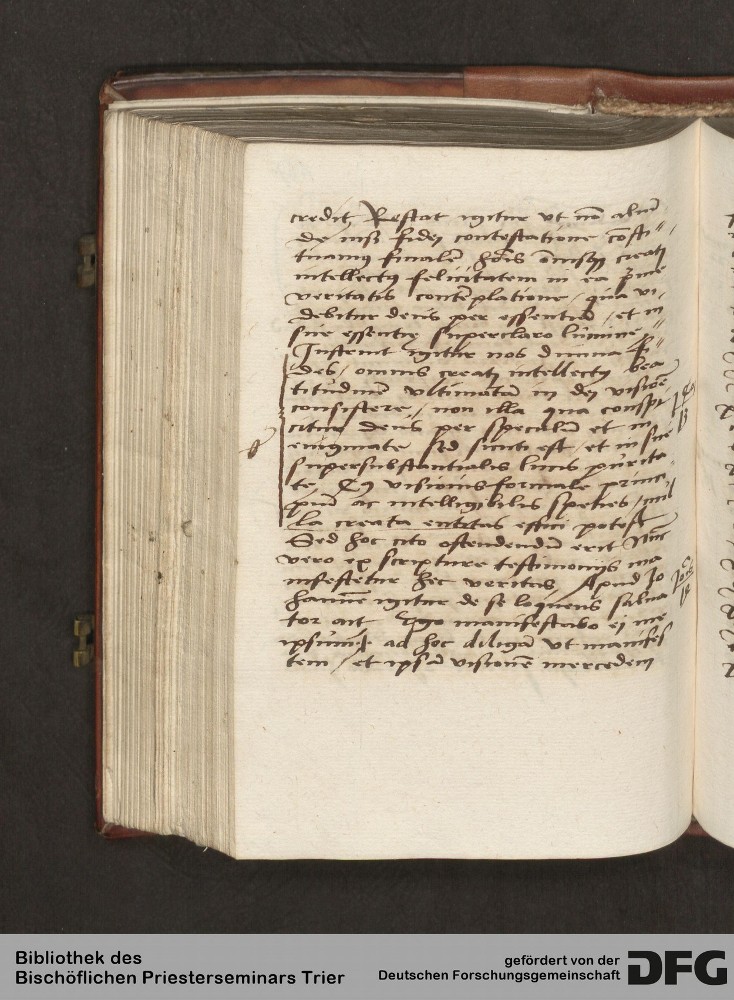 credit, Restat igitur ut nō aliud
de nisi fidei contestatione cōsti
tuamus finalē hoīs omnisq̄ creati
intellectus felicitatem in ea p̄me
veritatis contēplatione / qua vi-
debitur deus per essentiā / et in
sue essentię superclaro lumine /
Instruit igitur nos divina fi-
des / omnis creati intellectus bea
titudinē ultimatā in dei visiōe
consistere / non illa qua conspi
citur deus per speculū et in
enigmate Sed sicuti est / et in sue
supersubstantialis lucis purita
te. Cuius visionis formale princi
pium ac intelligibilis species / nul
la creata entitas effici potest
Sed hoc cito ostendendū erit Nūc
vero ex scripture testimoniis ma
nifestetur hec veritas Apud Jo
hannē igitur de se loquens salva
tor ait Ego manifestabo ei me
ipsum ad hoc diligā ut manifes
tem / et ipsā visionē mercedem
Bibliothek des
Bischöflichen Priesterseminars Trier
gefördert von der
Deutschen Forschungsgemeinschaft
DFG